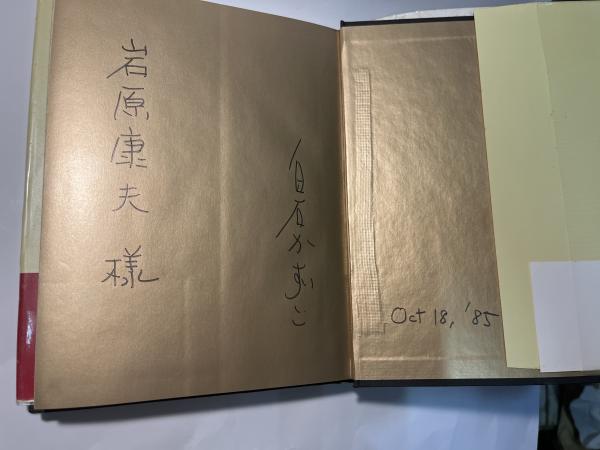 岩原康夫 様
白石かずこ
Oct 18, '85